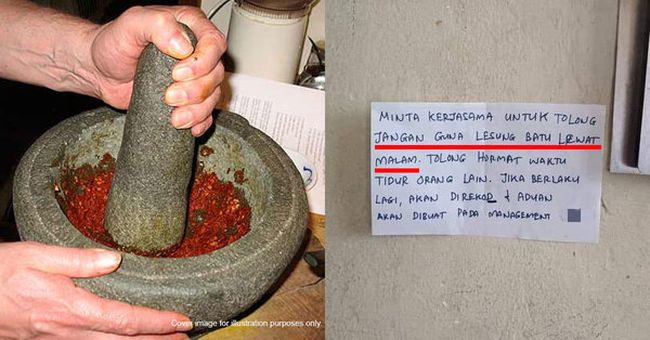 Cover image for illustration purposes only
MINTA KERJASAMA UNTUK TOLONG
JANGAN GUNA LESUNG BATU LEWAT
MALAM. TOLONG HORMAT WAKTU
TIDUR ORANG LAIN. JIKA BERLAKU
LAGI, AKAN DIREKOD & ADUAN
AKAN DIBUAT PADA MANAGEMENT